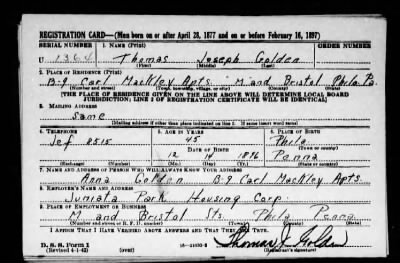 REGISTRATION CARD—(Men born on or after April 28, 1877 and on or before February 16, 1897)
SERIAL NUMBER 1. NAME (Print) ORDER NUMBER
U 1364 Thomas Joseph Golden
(First) (Middle) (Last)
2. PLACE OF RESIDENCE (Print)
B-9 Carl Mackley Apts. "M" and Bristol Phila. Pa.
(Number and street) (Town, township, village, or city) (County) (State)
[THE PLACE OF RESIDENCE GIVEN ON THE LINE ABOVE WILL DETERMINE LOCAL BOARD
JURISDICTION; LINE 2 OF REGISTRATION CERTIFICATE WILL BE IDENTICAL]
3. MAILING ADDRESS
Same
[Mailing address if other than place indicated on line 2. If same insert word same]
4. TELEPHONE 5. AGE IN YEARS 6. PLACE OF BIRTH
Jef 8515 45 Phila
DATE OF BIRTH (Town or county)
12 1896 Penna
(Exchange) (Number) (Mo.) (Day) (Yr.) (State or country)
7. NAME AND ADDRESS OF PERSON WHO WILL ALWAYS KNOW YOUR ADDRESS
Anna Golden B-9 Carl Mackley Apts.
8. EMPLOYER'S NAME AND ADDRESS
Juniata Park Housing Corp.
9. PLACE OF EMPLOYMENT OR BUSINESS
M and Bristol Sts. Phila Penna
(Number and street or R. F. D. number) (Town) (County) (State)
I AFFIRM THAT I HAVE VERIFIED ABOVE ANSWERS AND THAT THEY ARE TRUE.
Thomas J. Golden
D. S. S. Form 1
(Revised 4-1-42) (over) (Registrant's signature)